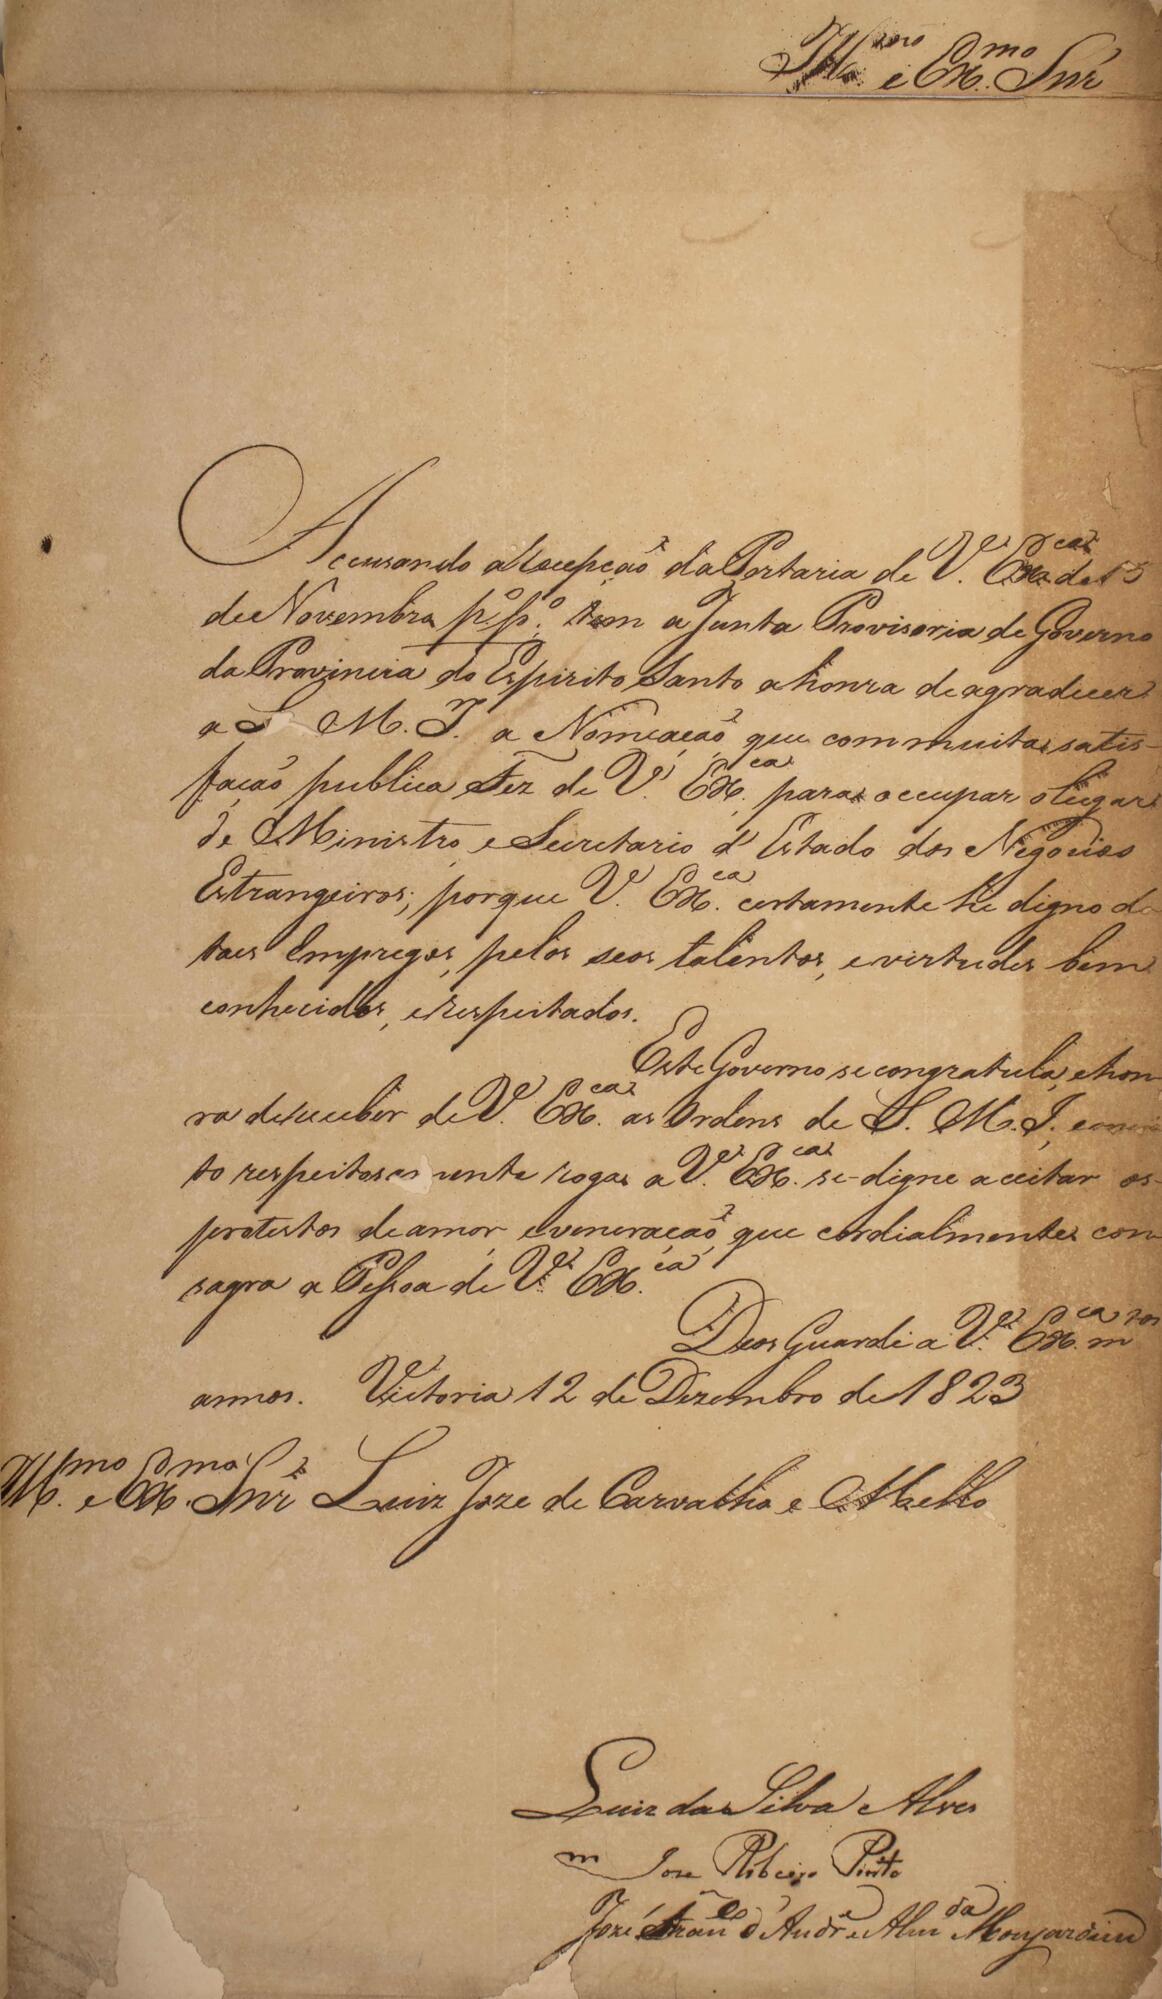 Ill.mo e Ex.mo Snr
Accusando a Recepção da Portaria de V. Ex.ca de 15
de Novembro p.º p.º, tem a Junta Provisoria de Governo
da Provincia do Espirito Santo a honra de agradecer
a S. M. I. a Nomeação que com muita satis-
fação publica Fez de V. Ex.ca para occupar o lugar
de Ministro, e Secretario d'Estado dos Negocios
Estrangeiros; porque V. Ex.ca certamente he digno de
taes Empregos, pelos seos talentos, e virtudes bem
conhecidos, e respeitados.
Este Governo se congratula, e hon-
ra de receber de V. Ex.ca as Ordens de S. M. I.,
to respeitosamente roga a V. Ex.ca se digne aceitar os
protestos de amor, e veneração, que cordialmente con-
sagra a Pessoa de V. Ex.ca
Deos Guarde a V. Ex.ca m.tos
annos. Victoria 12 de Dezembro de 1823
Ill.mo e Ex.mo Snr Luiz Joze de Carvalho e Mello
Luiz da Silva Alves
Jose Ribeiro Pinto
José Fran.co d'Andr.e Alm.da Monjardim